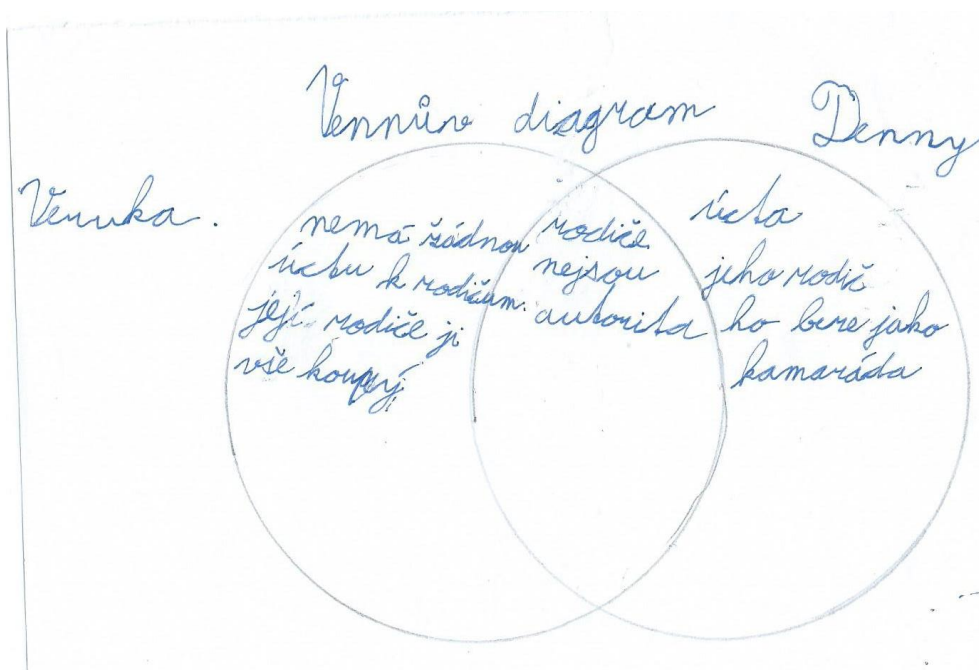 Vennův diagram
Denny
Veruka.
nemá žádnou
úctu k rodičům.
její rodiče ji
vše koupují
rodiče
nejsou
autorita
úcta
jeho rodič
ho bere jako
kamaráda